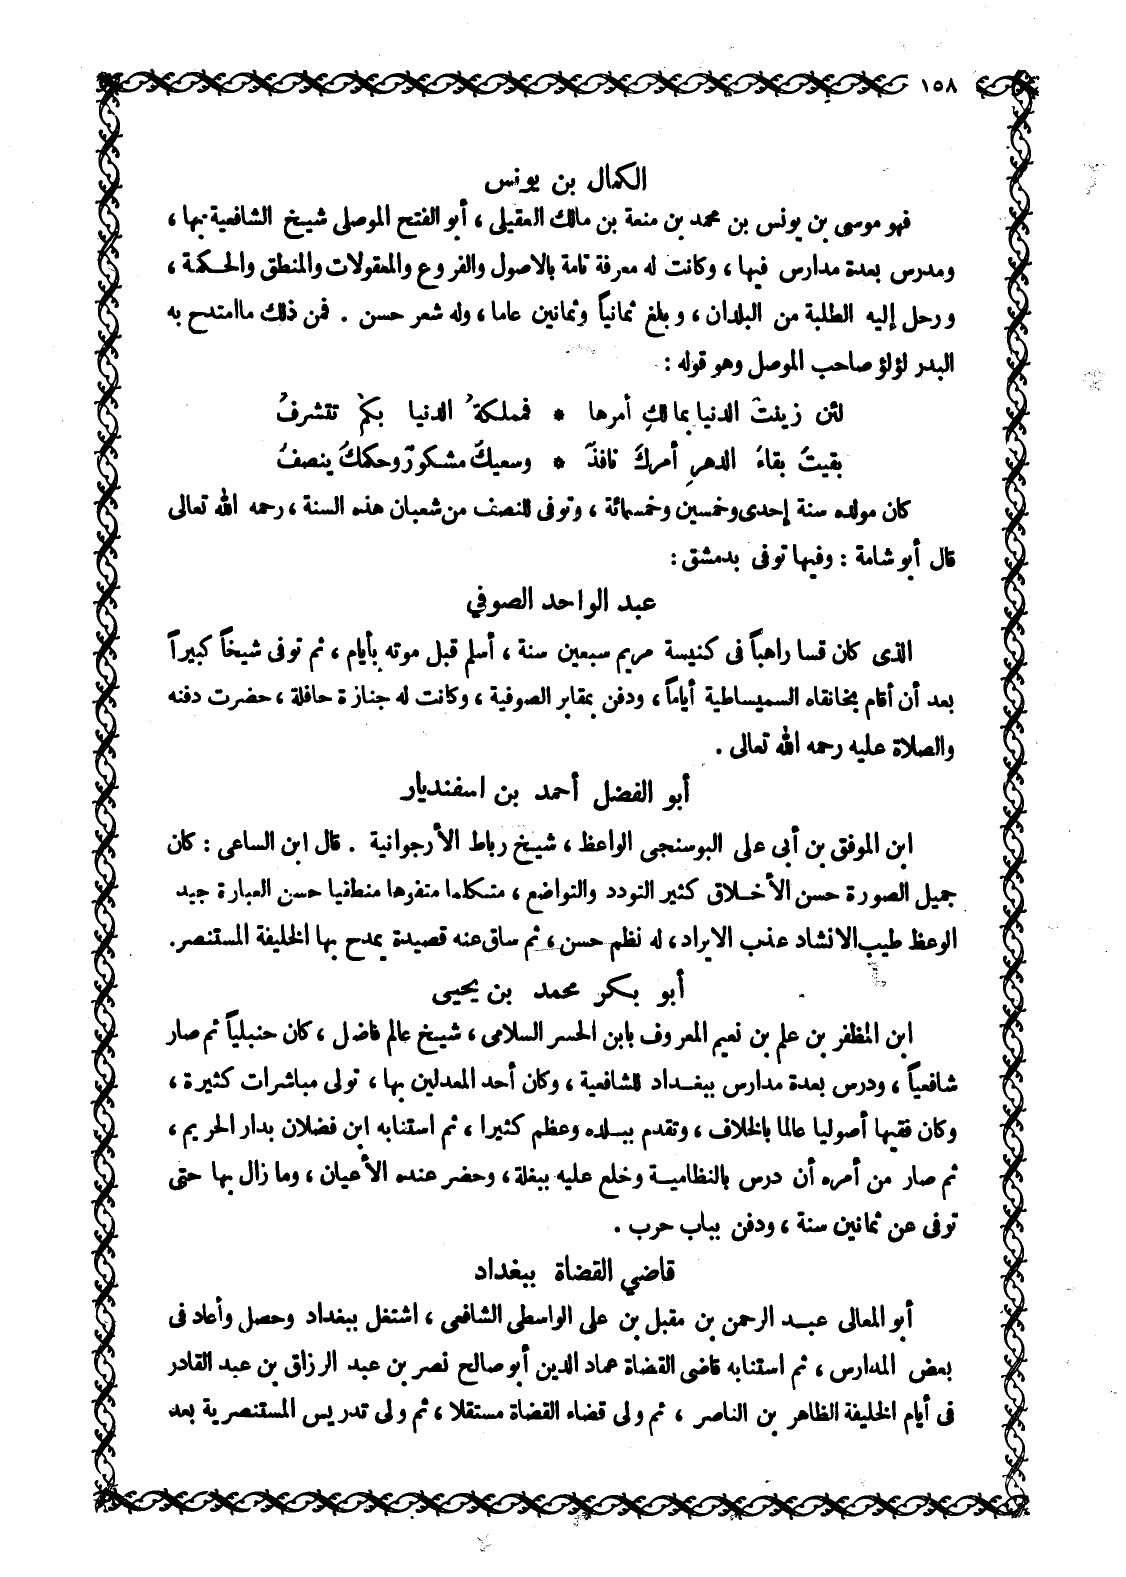 ١٥٨
الكمال بن يونس
فهو موسى بن يونس بن محمد بن منعة بن مالك العقيلى ، أبو الفتح الموصلى شيخ الشافعية بها ،
ومدرس بعدة مدارس فيها ، وكانت له معرفة تامة بالاصول والفروع والمعقولات والمنطق والحكمة ،
ورحل إليه الطلبة من البلدان ، وبلغ ثمانياً وثمانين عاما ، وله شعر حسن . فمن ذلك ما امتدح به
البدر لؤلؤ صاحب الموصل وهو قوله :
لئن زينتَ الدنيا بمالكِ أمرها * فمملكةُ الدنيا بكمْ تتشرفُ
بقيتُ بقاءُ الدهرِ أمركَ نافذٌ * وسعيكَ مشكورٌ وحكمكَ ينصفُ
كان مولده سنة إحدى وخمسين وخمسمائة ، وتوفى للنصف من شعبان هذه السنة ، رحمه الله تعالى
قال أبو شامة : وفيها توفى بدمشق :
عبد الواحد الصوفي
الذى كان قسا راهباً فى كنيسة مريم سبعين سنة ، أسلم قبل موته بأيام ، ثم توفى شيخاً كبيراً
بعد أن أقام بخانقاه السميساطية أياماً ، ودفن بمقابر الصوفية ، وكانت له جنازة حافلة ، حضرت دفنه
والصلاة عليه رحمه الله تعالى .
أبو الفضل أحمد بن اسفنديار
ابن الموفق بن أبى على البوسنجى الواعظ ، شيخ رباط الأرجوانية . قال ابن الساعى : كان
جميل الصورة حسن الأخلاق كثير التودد والتواضع ، متكلما متفوها منطقيا حسن العبارة جيد
الوعظ طيب الانشاد عذب الايراد ، له نظم حسن ، ثم ساق عنه قصيدة يمدح بها الخليفة المستنصر.
أبو بكر محمد بن يحيى
ابن المظفر بن علم بن نعيم المعروف بابن الحسر السلامى ، شيخ عالم فاضل ، كان حنبلياً ثم صار
شافعياً ، ودرس بعدة مدارس ببغداد للشافعية ، وكان أحد المعدلين بها ، تولى مباشرات كثيرة ،
وكان فقيها أصوليا عالما بالخلاف ، وتقدم ببلده وعظم كثيرا ، ثم استنابه ابن فضلان بدار الحريم ،
ثم صار من أمره أن درس بالنظامية وخلع عليه ببغلة ، وحضر عنده الأعيان ، وما زال بها حتى
توفى عن ثمانين سنة ، ودفن بباب حرب .
قاضي القضاة ببغداد
أبو المعالى عبد الرحمن بن مقبل بن على الواسطى الشافعى ، اشتغل ببغداد وحصل وأعاد فى
بعض المدارس ، ثم استنابه قاضى القضاة عماد الدين أبو صالح نصر بن عبد الرزاق بن عبد القادر
فى أيام الخليفة الظاهر بن الناصر ، ثم ولى قضاء القضاة مستقلا ، ثم ولى تدريس المستنصرية بعد